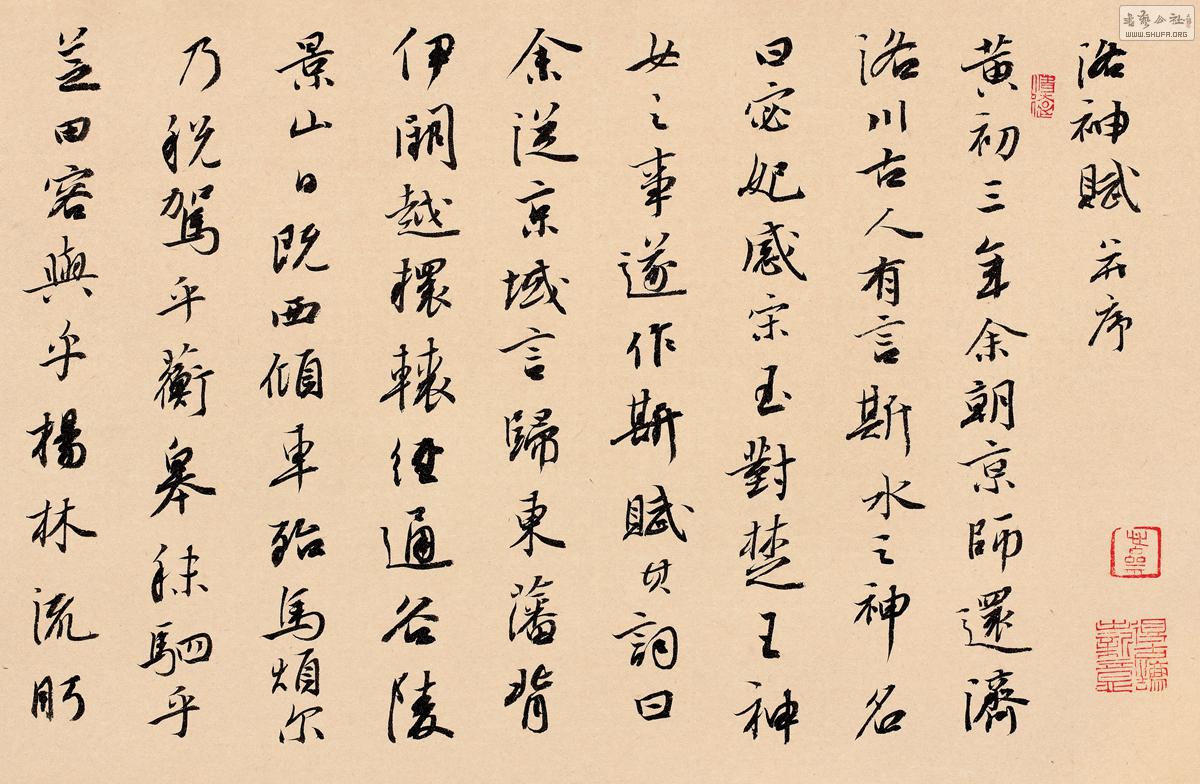 洛神賦并序
黄初三年余朝京師還濟
洛川古人有言斯水之神名
曰宓妃感宋玉對楚王神
女之事遂作斯賦其詞曰
余從京域言歸東藩背
伊闕越轘轅經通谷陵
景山日既西傾車殆馬煩尔
乃稅駕乎蘅皋秣駟乎
芝田容與乎楊林流眄
書藝公社
WWW.SHUFA.ORG